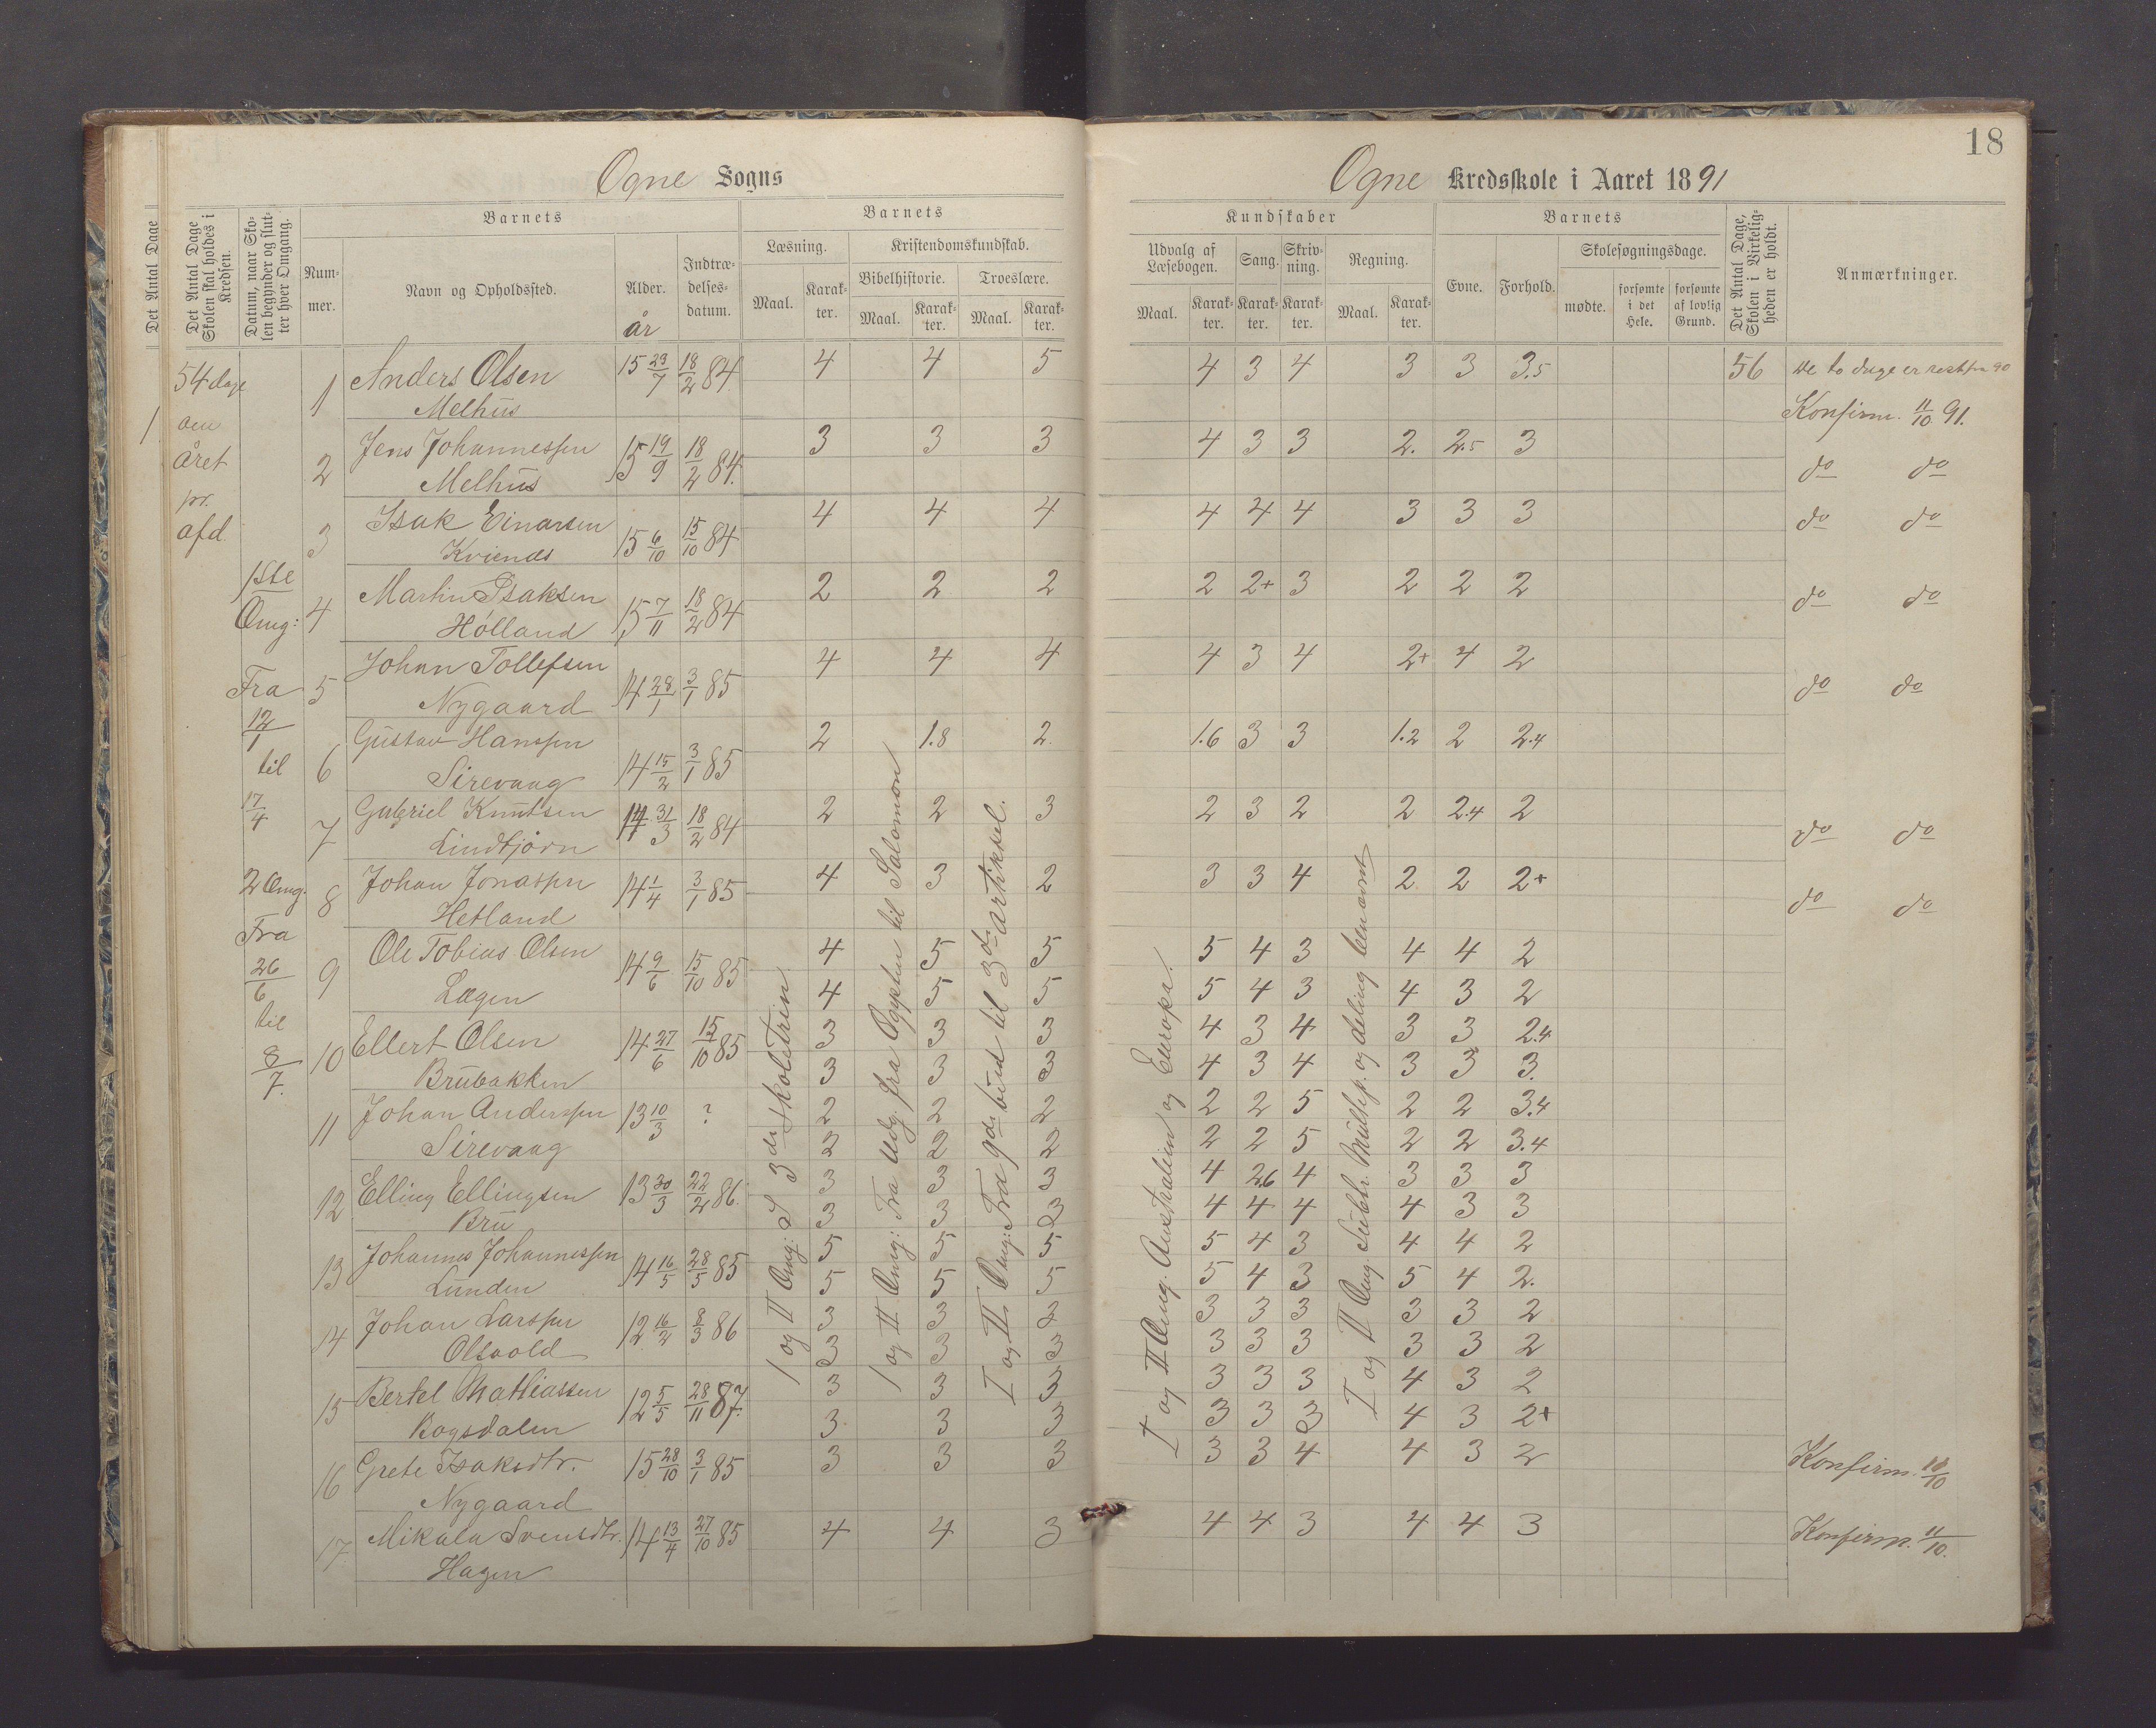 18
Ogne Sogns
Ogne Kredsskole i Aaret 1891
Det Antal Dage
Det Antal Dage Skolen skal holdes i Kredsen.
Datum, naar Skolen begynder og slutter hver Omgang.
Barnets
Nummer.
Navn og Opholdssted.
Alder.
år
Indtrædelsesdatum.
Barnets
Læsning.
Kristendomskundskab.
Bibelhistorie.
Troeslære.
Maal.
Karakter.
Maal.
Karakter.
Maal.
Karakter.
Kundskaber
Udvalg af Læsebogen.
Sang.
Skrivning.
Regning.
Maal.
Karakter.
Karakter.
Karakter.
Maal.
Karakter.
Barnets
Evne.
Forhold.
Skolesøgningsdage.
mødte.
forsømte i det Hele.
forsømte af lovlig Grund.
Det Antal Dage, Skolen i Virkeligheden er holdt.
Anmærkninger.
54 dage
om
året
pr.
afd.
1ste
Omg:
Fra
12/1
til
17/4
2 Omg.
Fra
26/6
til
8/7.
1 Anders Olsen 15 23/7 18/2 84. 4 4 5 4 3 4 3 3 3.5 56 de to dage er rest fra 90
Melhus Konfirm. 11/10 91.
2 Jens Johannessen 15 19/9 18/2 84. 3 3 3 4 3 3 2. 2.5 3 do do
Melhus
3 Isak Einarsen 15 6/10 15/10 84 4 4 4 4 4 4 3 3 3 do do
Kviends
4 Martin Isaksen 15 7/11 18/2 84 2 2 2 2 2+ 3 2 2 2 do do
Hølland
5 Johan Tollefsen 14 28/1 3/1 85 4 4 4 4 3 4 2+ 4 2 do do
Nygaard
6 Gustav Hanssen 14 15/2 3/1 85 2 1.8 2. 1.6 3 3 1.2 2 2.4
Sirevaag
7 Gabriel Knudsen 14 31/3 18/2 84 2 2 3 2 3 2 2 2.4 2 do do
Lindtjørn
8 Johan Jonassen 14 1/4 3/1 85 4 3 2 3 3 4 2 2 2+ do do
Hetland
9 Ole Tobias Olsen 14 9/6 15/10 85 4 5 5 5 4 3 4 4 2
Lægen 4 5 5 5 4 3 4 3 2
10 Ellert Olsen 14 27/6 15/10 85 3 3 3 4 3 4 3 3 2.4
Brubakken 3 3 3 4 3 4 3 3 3.
11 Johan Anderssen 13 10/3 ? 2 2 2 2 2 5 2 2 3.4
Sirevaag 2 2 2 2 2 5 2 2 3.4
12 Elling Ellingsen 13 30/3 22/2 86. 3 3 3 4 2.6 4 3 3 3
Bru 3 3 3 4 4 4 4 3 3
13 Johannes Johannessen 14 16/5 28/5 85 5 5 5 5 4 3 4 4 2
Lunden 5 5 5 5 4 3 5 4 2.
14 Johan Larssen 12 16/2 8/3 86 3 3 3 3 3 3 3 3 2
Olsvold 3 3 3 3 3 3 3 3 2
15 Bertel Mathiassen 12 5/5 28/11 87. 3 3 3 3 3 3 4 3 2
Bogsdalen 3 3 3 3 3 3 4 3 2+
16 Grete Isaksdtr. 15 28/10 3/1 85 3 3 3 3 3 4 4 3 2 Konfirm. 10/10
Nygaard
17 Mikala Svensdtr. 14 13/4 27/10 85 4 4 3 4 4 3 4 4 3 Konfirm. 11/10.
Hagen
I og II Omg: I 3die skoletrin
I og II Omg: Fra Udg. fra Ægypten til Salomon
I og II Omg: Fra 9de bud til 3die artikkel.
I og II Omg. Australien og Europa.
I og II Omg. Subtr. Multip. og deling